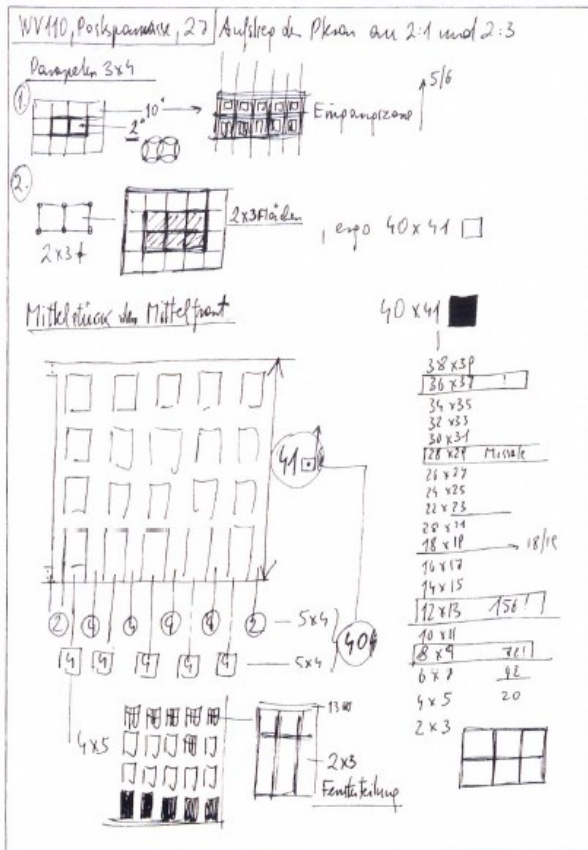 WV110, Postsparkasse, 27 Aufstieg der Pleran an 2:1 und 2:3
Parapeten 3x4
1.
10
2
Eingangszone
5/6
2.
2x3
2x3 Flächen
, ergo 40x41
Mittelstück der Mittelfront
40x41
38x39
36x37 !
34x35
32x33
30x31
28x29 Missale
26x27
24x25
22x23
20x21
18x19 18/19
16x17
14x15
12x13 156!
10x11
8x9 72!
6x7 42
4x5 20
2x3
41
2 4 4 4 4 2 5x4
4 4 4 4 4 5x4
40
4x5
13
2x3
Fensterteilung